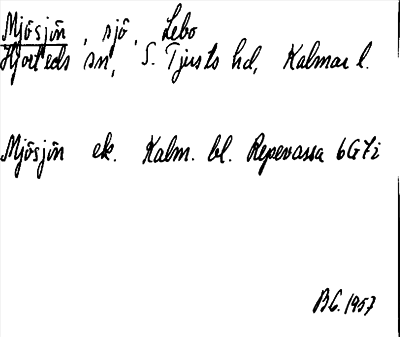 Mjösjön, sjö, Lebo
Hjorteds sn, S. Tjusts hd, Kalmar l.
Mjösjön ek. Kalm. bl. Repevassa 6G7i
B.G. 1957